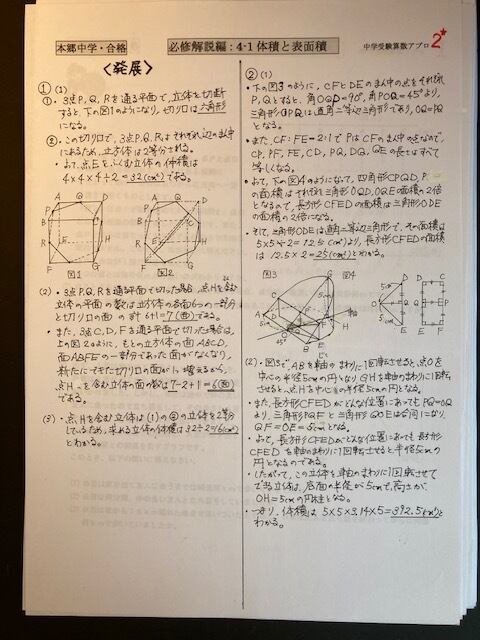 本郷中学・合格
必修解説編：4-1 体積と表面積
中学受験算数アプロ
2
〈発展〉
① (1)
①・3点P, Q, Rを通る平面で, 立体を切断
すると, 下の図1のようになり, 切り口は六角形
になる。
②・この切り口で, 3点P, Q, Rはそれぞれ辺のまん中
にあるため, 立方体は2等分される。
・よって, 点Eをふくむ立体の体積は
4×4×4÷2=32(cm³)である。
A
P
D
B
Q
C
R
E
H
F
G
図1
A
P
D
B
Q
C
R
E
H
F
G
図2
(2)・3点P, Q, Rを通る平面で切った場合, 点Hを含む
立体の平面の数は立方体の各面6つの一部分
と切り口の面の計6+1=7(面)である。
・また, 3点C, D, Fを通る平面で切った場合は,
上の図2のように, もとの立方体の面ABCD,
面ABFEの一部分であった面がなくなり,
新たにできた切り口の面が1つ増えるから,
点Hを含む立体の面の数は7-2+1=6(面)
である。
(3)・点Hを含む立体は(1)の②の立体を2等分
しているため, 求める立体の体積は32÷2=16(cm³)
とわかる。
② (1)
・下の図3のように, CFとDEのまん中の点をそれぞれ
P, Qとすると, 角OQD=90°, 角POQ=45°より,
三角形OPQは, 直角二等辺三角形であり, OQ=PQ
となる。
・また, CF:FE=2:1でPはCFのまん中の点なので,
CP, PF, FE, CD, PQ, DQ, QEの長さはすべて
等しくなる。
・よって, 下の図4のようになって, 四角形CPQD,
の面積はそれぞれ三角形OQD, OQEの面積の2倍
となるので, 長方形CFEDの面積は三角形ODE
の面積の2倍になる。
・そして, 三角形ODEは直角二等辺三角形で, その面積は
5×5÷2=12.5(cm²)より, 長方形CFEDの面積
は 12.5×2=25(cm²)とわかる。
図3
図4
5cm
45°
(2)・図3で, ABを軸のまわりに1回転させると, 点Oを
中心の半径5cmの円となり, GHを軸のまわりに1回転
させると, 点Hを中心の半径5cmの円となる。
・また, 長方形CFEDがどんな位置にあってもPQ=OQ
より, 三角形PQFと三角形QOEは合同になり,
QF=OE=5cmとなる。
・よって, 長方形CFEDがどんな位置にあっても, 長方形
CFEDを軸のまわりに1回転させると半径5cmの
円となるのである。
・したがって, この立体を軸のまわりに1回転させて
できる立体は, 底面の半径が5cmで, 高さが,
OH=5cmの円柱となる。
・つまり, 体積は 5×5×3.14×5=392.5(cm³)と
わかる。